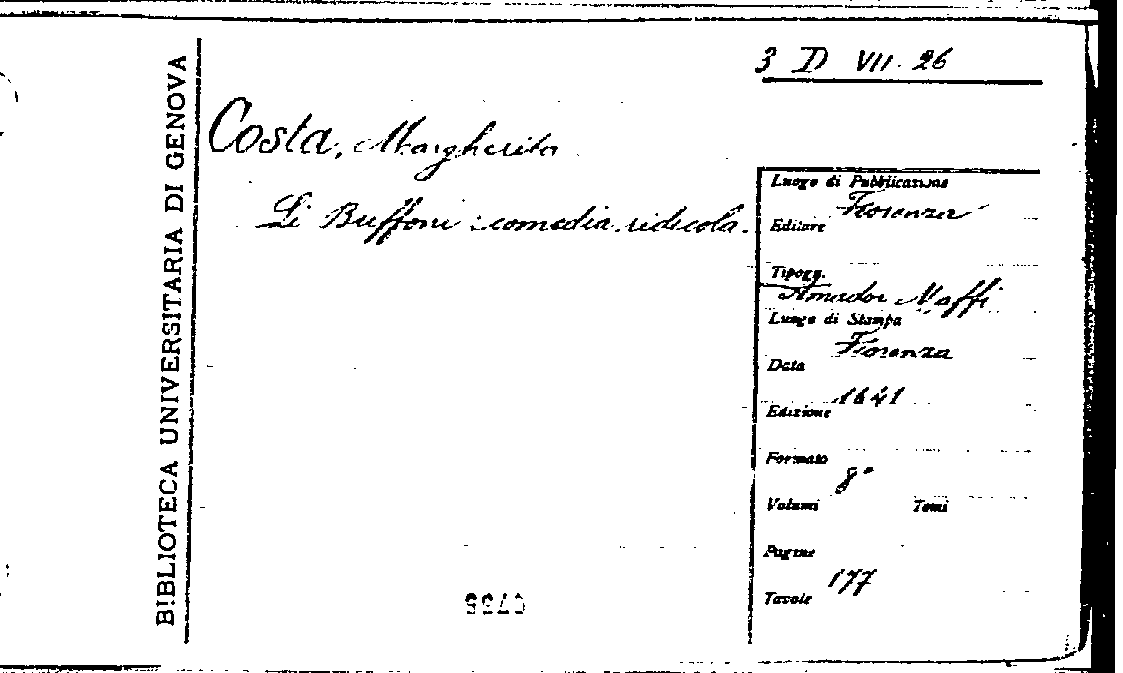 BIBLIOTECA UNIVERSITARIA DI GENOVA
3 D VII. 26
Costa, Margherita
Li Buffoni: comedia ridicola.
Luogo di Pubblicazione
Fiorenza
Editore
Tipogr.
Amador Maffi
Luogo di Stampa
Fiorenza
Data
1641
Edizione
Formato
8°
Volumi Tomi
Pagine
177
Tavole